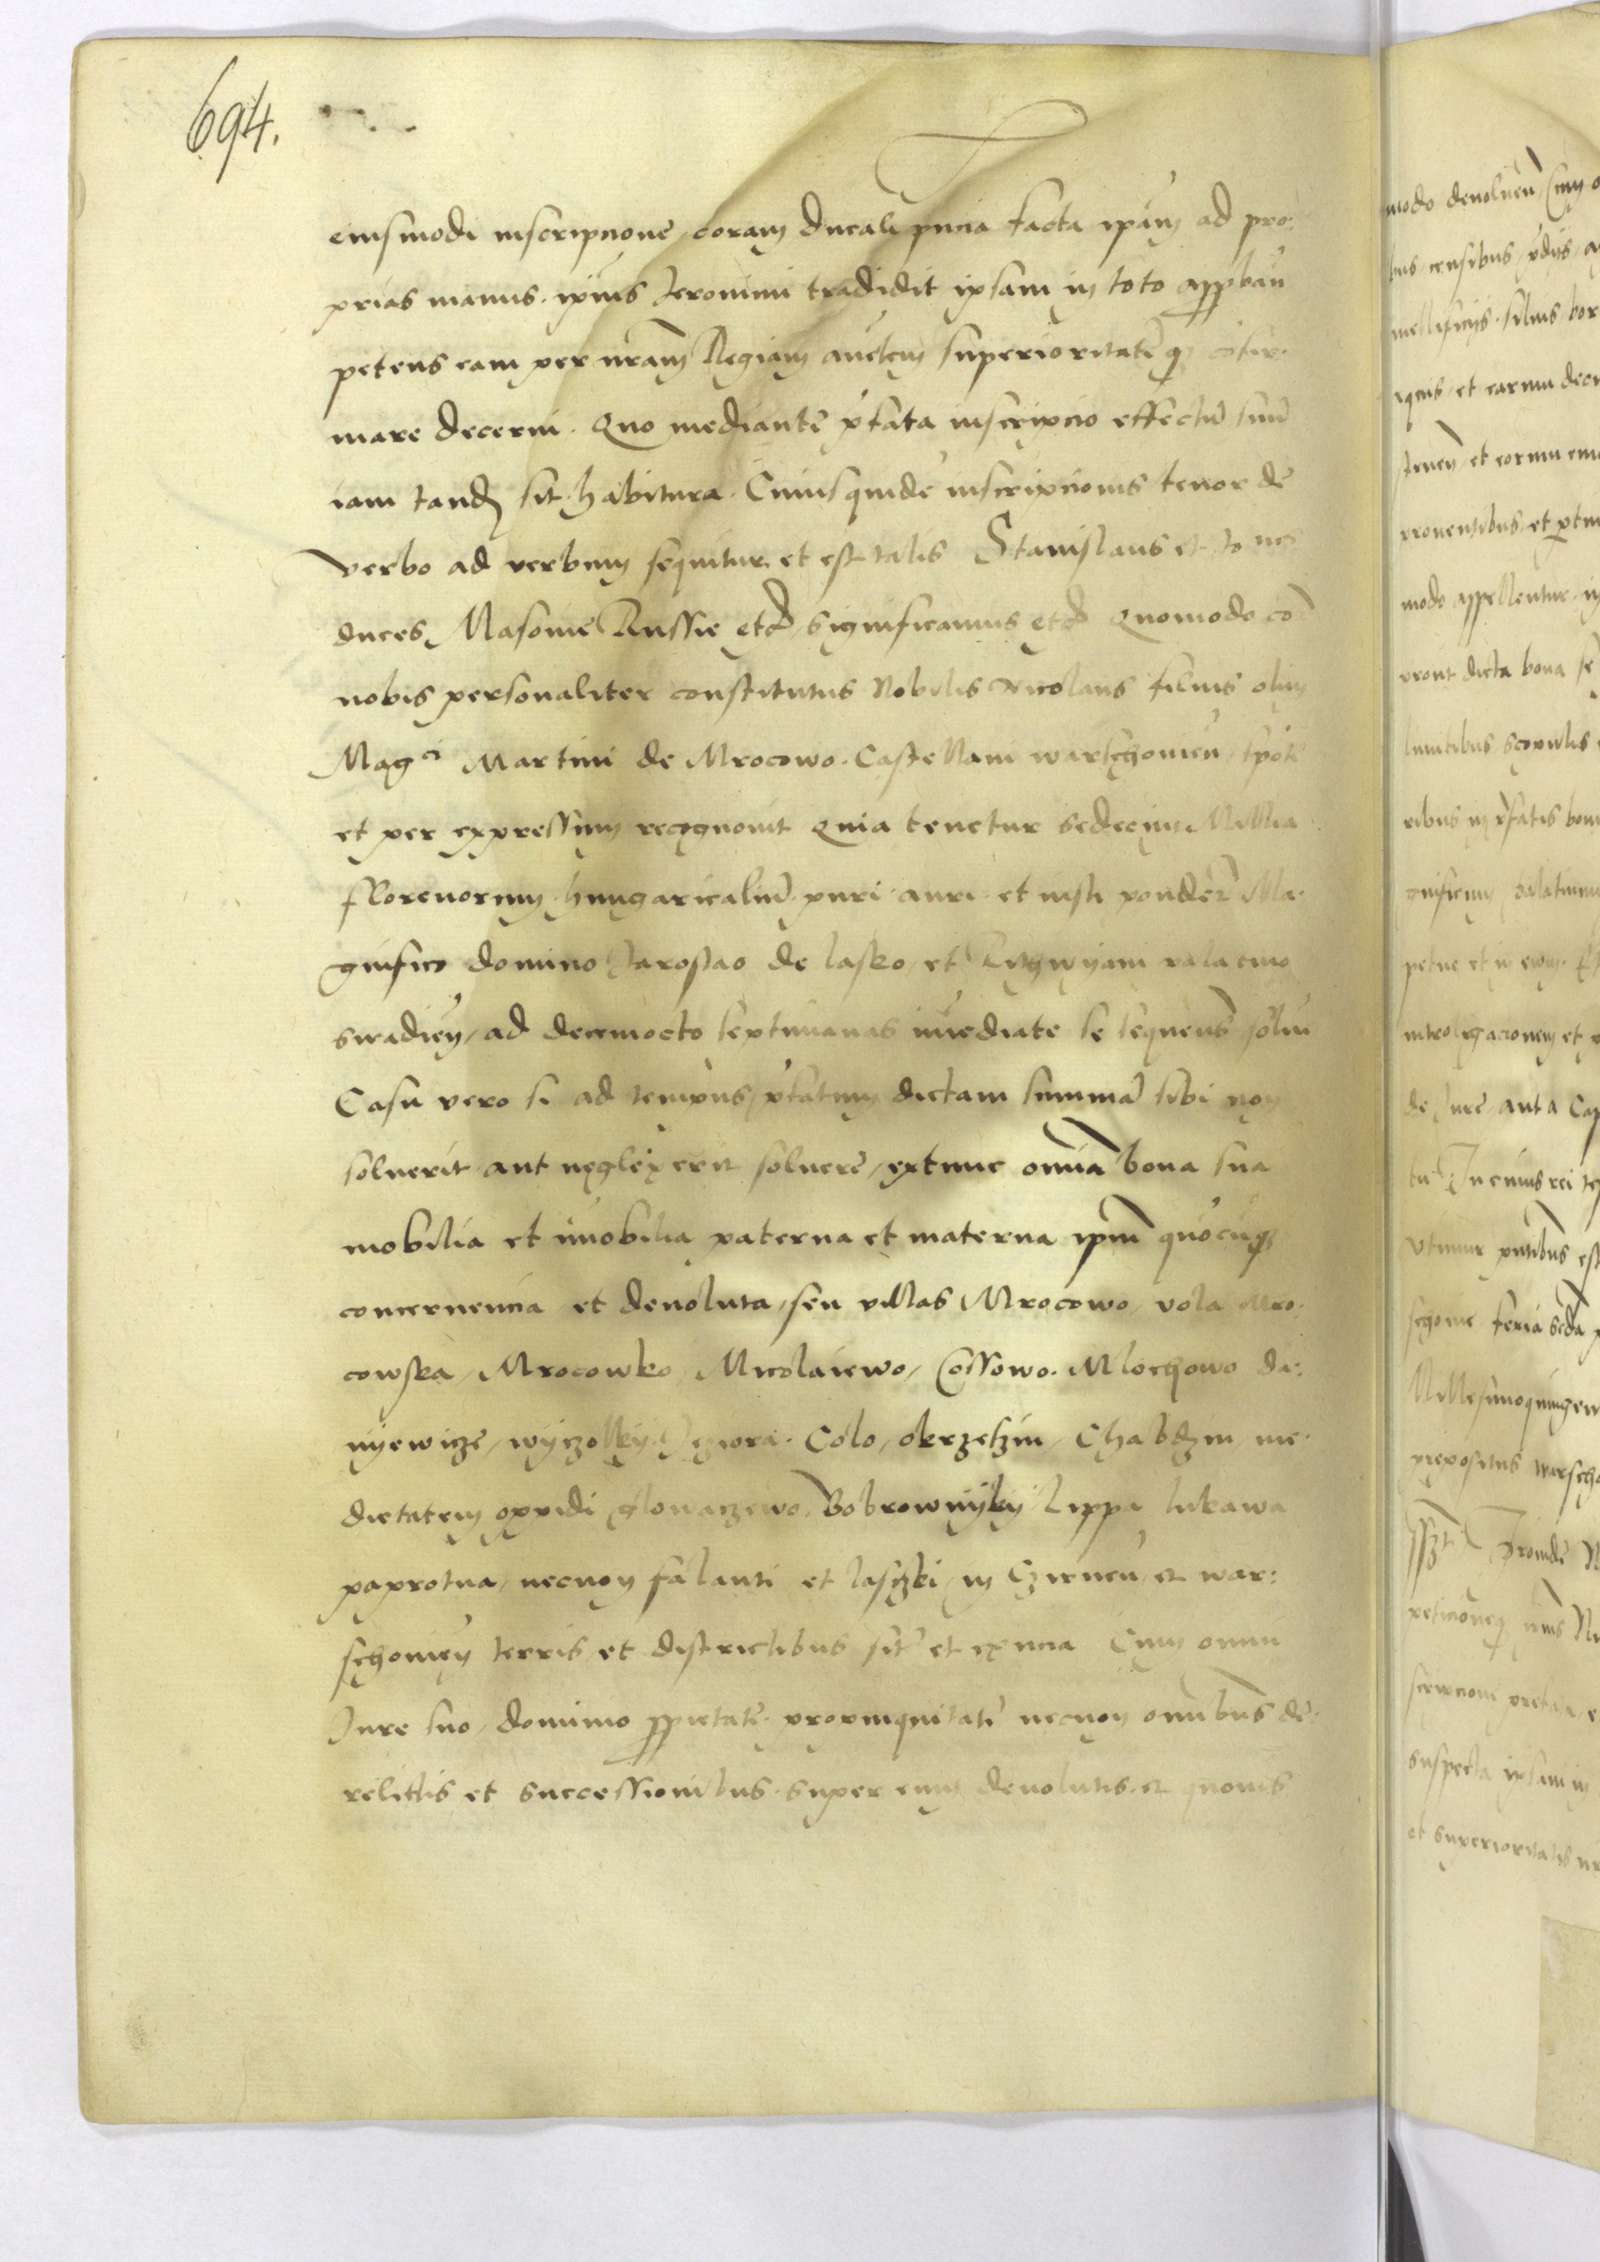 694.
eiusmodi inscripcione, coram Ducali pncia facta ipam ad pro:
prias manus ipius Jeronimi tradidit ipsam in toto appbau
petens eam per nram Regiam auctem superioritateq cofir:
mare decerni. Quo mediante pfata inscripcio effectu suu
iam tand sit habitura. Cuiusquide inscripcionis tenor de
verbo ad verbum sequitur et est talis Stanislaus et Jo nes
duces Masouie Russie etc significamus etc Quomodo co
nobis personaliter constitutus Nobilis Nicolaus filius olim
Magci Martini de Mrocowo Castellani warschouien, spote
et per expressum recognouit Quia tenetur sedecim Millia
fflorenorum hungaricaliu puri auri et iusti ponder Ma:
gnifico domino Jaroslao de lasko, et palatino
siradien, ad decemocto septimanas imediate se sequens solui
Casu vero si ad tempus pfatum dictam summa sibi non
soluerit aut neglexerit soluere, extunc omnia bona sua
mobilia et imobilia paterna et materna ipm quocuq
concernencia et deuoluta, seu villas Mrocowo, vola Mro:
cowska, Mrocowko Micolaiewo, Cossowo. Mlochowo da:
nyewicze, wyczolky Jeziora. Colo, okrzeschin, Chabdzin, me:
dietatem oppidi glouaczewo. Bobrownyky Lippa lukawa
paprotna, necnon falanti et lasczki in Czirnen et war:
schouien terris et districtibus sit et Cum omni
Jure suo, dominio ppietate propinquitate necnon omibus de:
relictis et successionibus super eum deuolutis et quouis
modo deuoluen, Cum
bus censibus pdiis
mellificiis siluis bor
aquis, et earum decu
fluen, et eorum
prouentibus et ptin
modo appellentur
prout dicta bona
limitibus scopulis
ribus in pfatis boni
gnificum palatinum
petue et in eum
introligacionem et
de Jure aut a Cap
tu Jn cuius rei te
vtimur pntibus est
schouie feria scda
Millesimoquingen
prepositus warscho
Proinde
peticione
suspecta ipsam in
et superioritatis nr